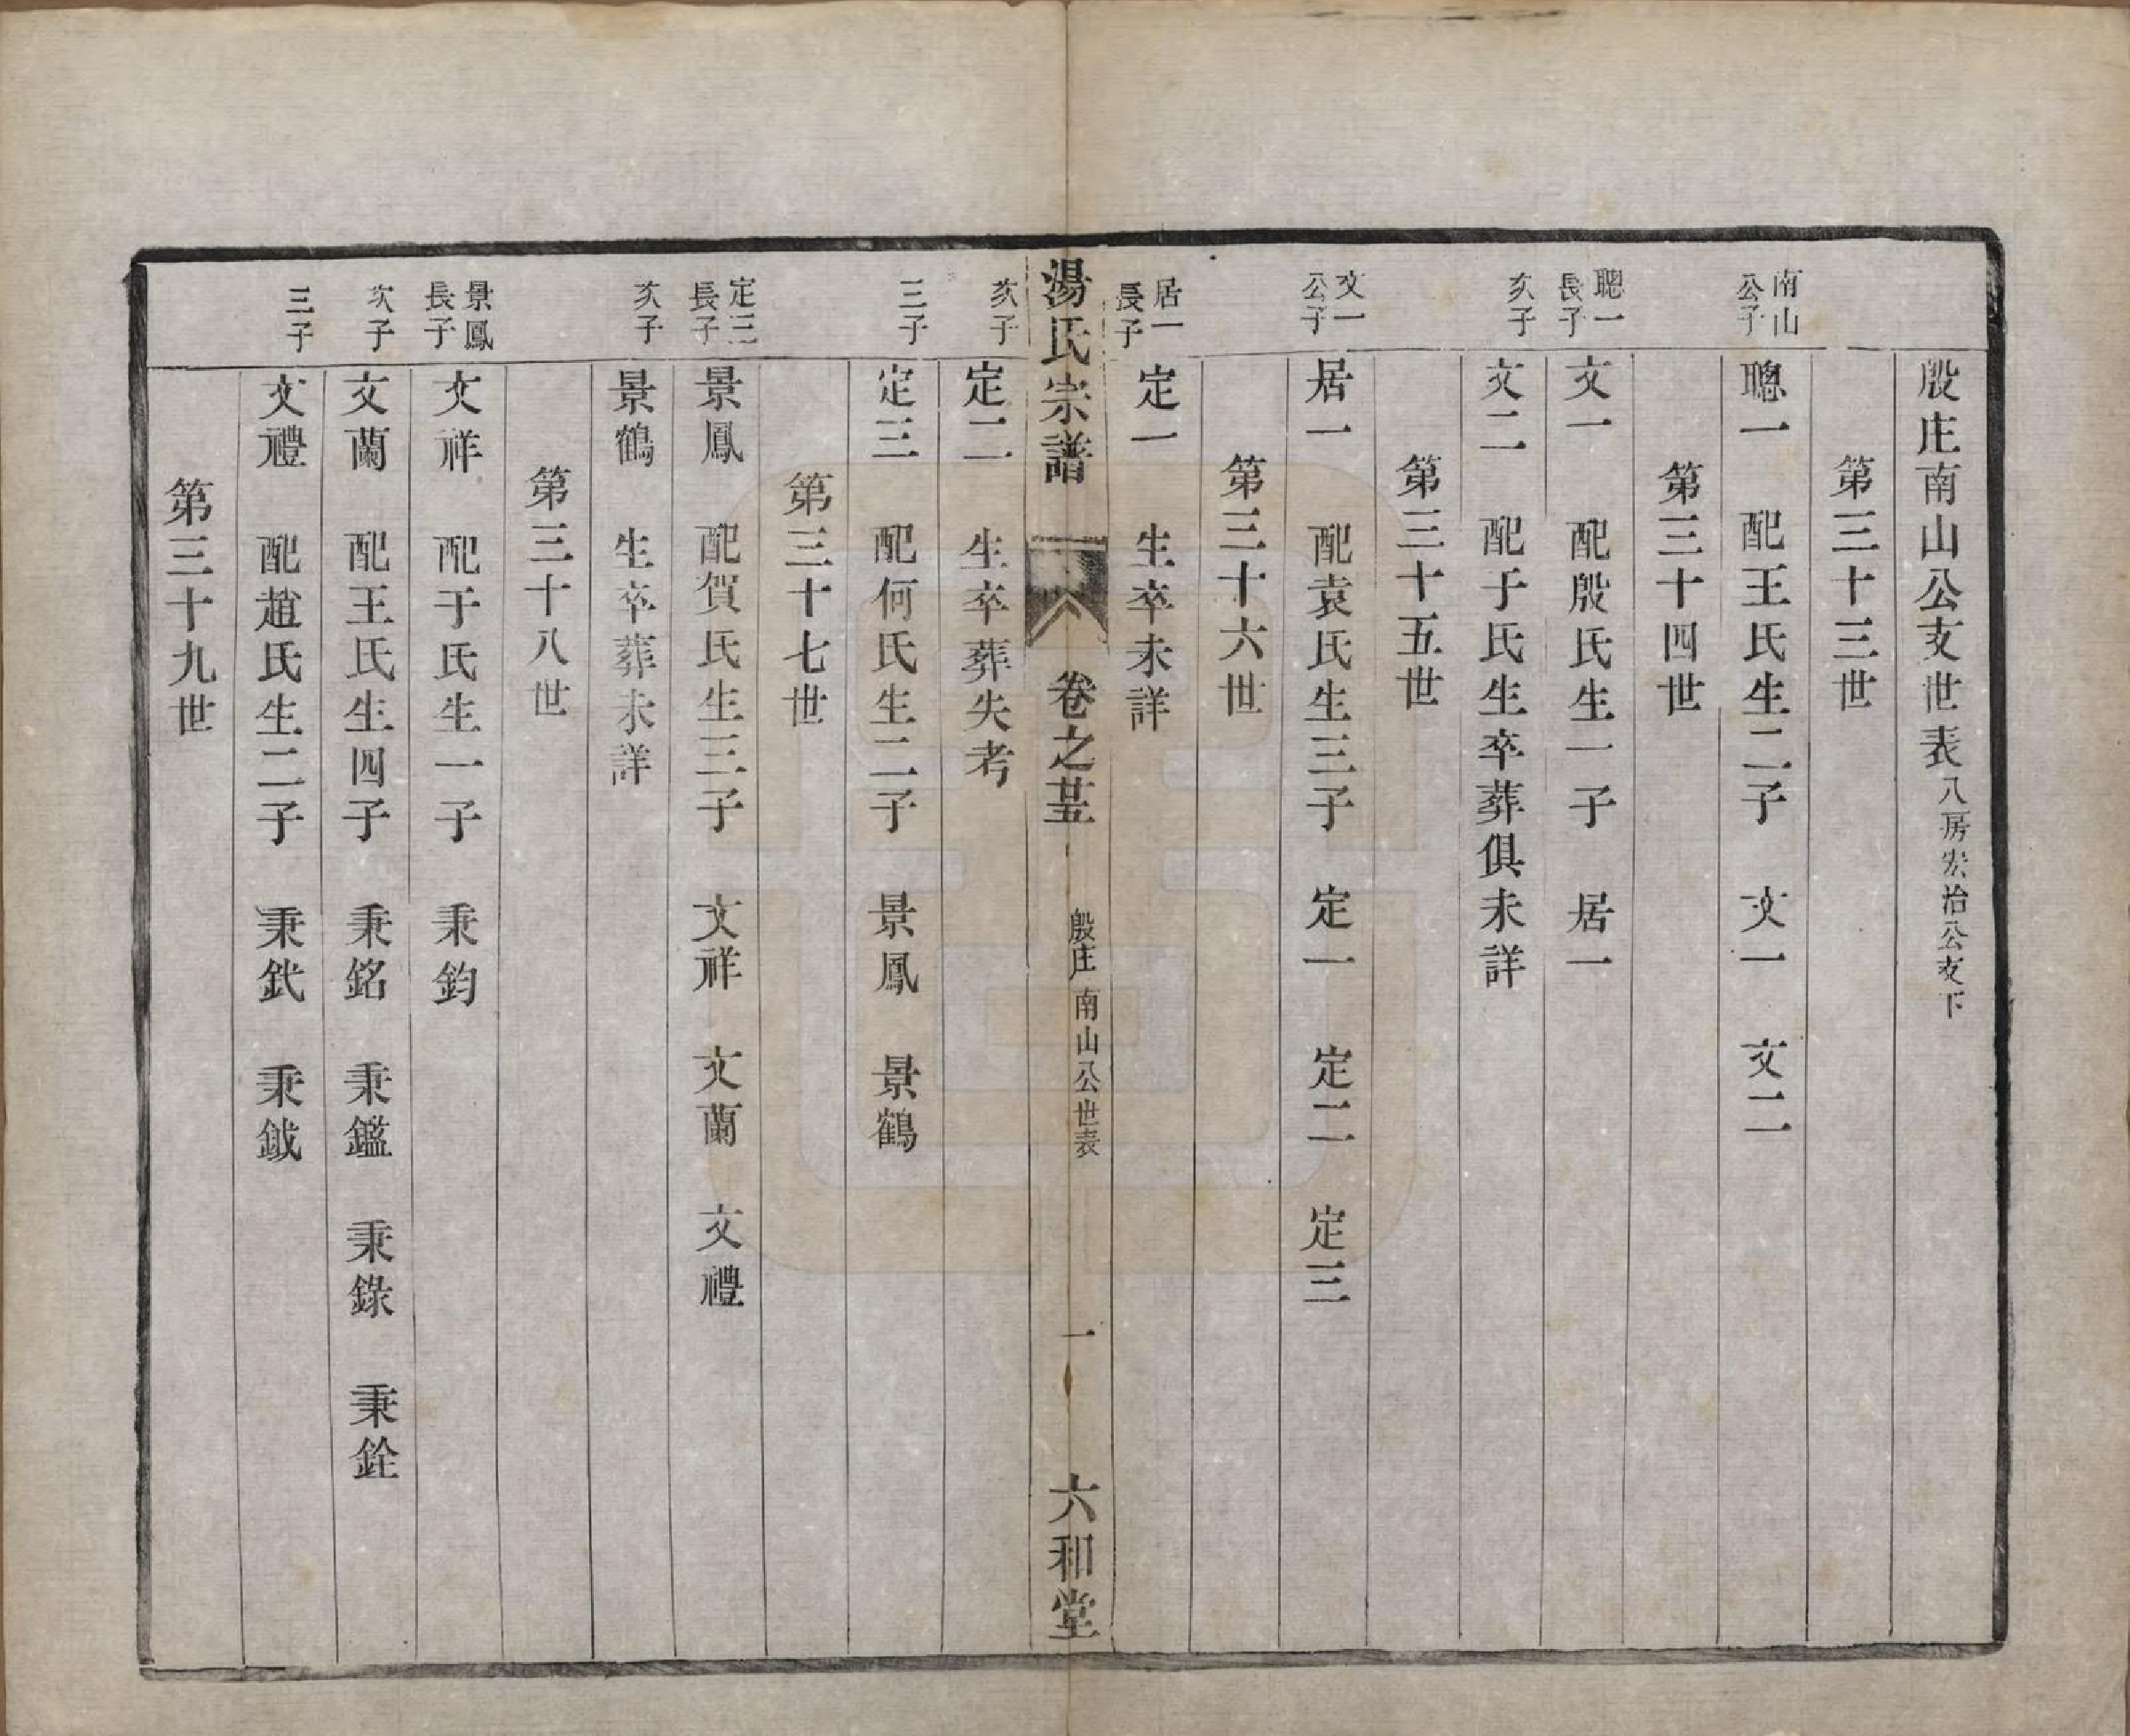 殷庄南山公支世表八房宏治公支下
第三十三世
南山公子 聰一 配王氏生二子 文一 文二
第三十四世
聰一長子 文一 配殷氏生一子 居一
次子 文二 配于氏生卒葬俱未詳
第三十五世
文一公子 居一 配袁氏生三子 定一 定二 定三
第三十六世
居一長子 定一 生卒未詳
湯氏宗譜 卷之茥 殷庄南山公世表 一 六和堂
次子 定二 生卒葬失考
三子 定三 配何氏生二子 景鳳 景鶴
第三十七世
定三長子 景鳳 配賀氏生三子 文祥 文蘭 文禮
次子 景鶴 生卒葬未詳
第三十八世
景鳳長子 文祥 配于氏生一子 秉鈞
次子 文蘭 配王氏生四子 秉銘 秉鑑 秉錄 秉銓
三子 文禮 配趙氏生二子 秉鉽 秉鉞
第三十九世